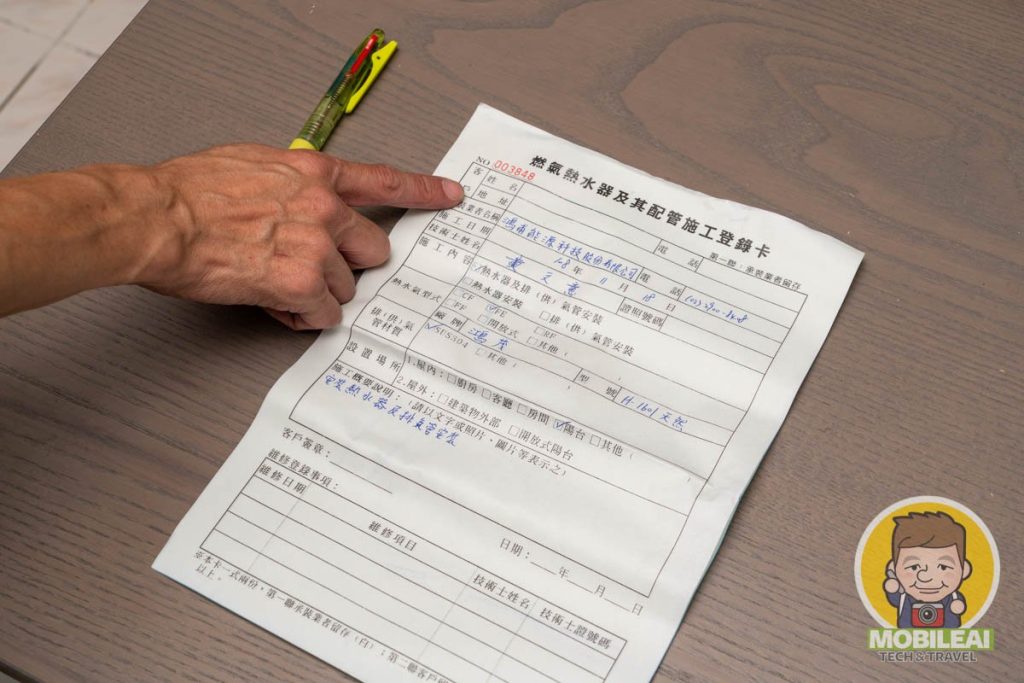 燃氣熱水器及其配管施工登錄卡
NO 003848
第一聯:承裝業者留存
客戶 姓名 電話
地址
承裝業者名稱 鴻甫能源科技股份有限公司 電話
施工日期 108年 11月 18日
技術士姓名 證照號碼
施工內容 ☑熱水器及排(供)氣管安裝
□熱水器安裝 □排(供)氣管安裝
熱水氣型式 □CF ☑FE □RF
□FF □開放式 □其他(
廠牌 型號 H-1601天然
排(供)氣管材質 ☑SUS304 □其他(
設置場所 1.屋內:□廚房 □客廳 □房間 ☑陽台 □其他(
2.屋外:□建築物外部 □開放式陽台
施工概要說明:(請以文字或照片、圖片等表示之)
安裝熱水器及排氣管安裝
客戶簽章:
日期: 年 月 日
維修登錄事項:
維修日期 維修項目 技術士姓名 技術士證號碼
※本卡一式兩份,第一聯承裝業者留存(白);第二聯客戶
以上。
MOBILEAI
TECH&TRAVEL